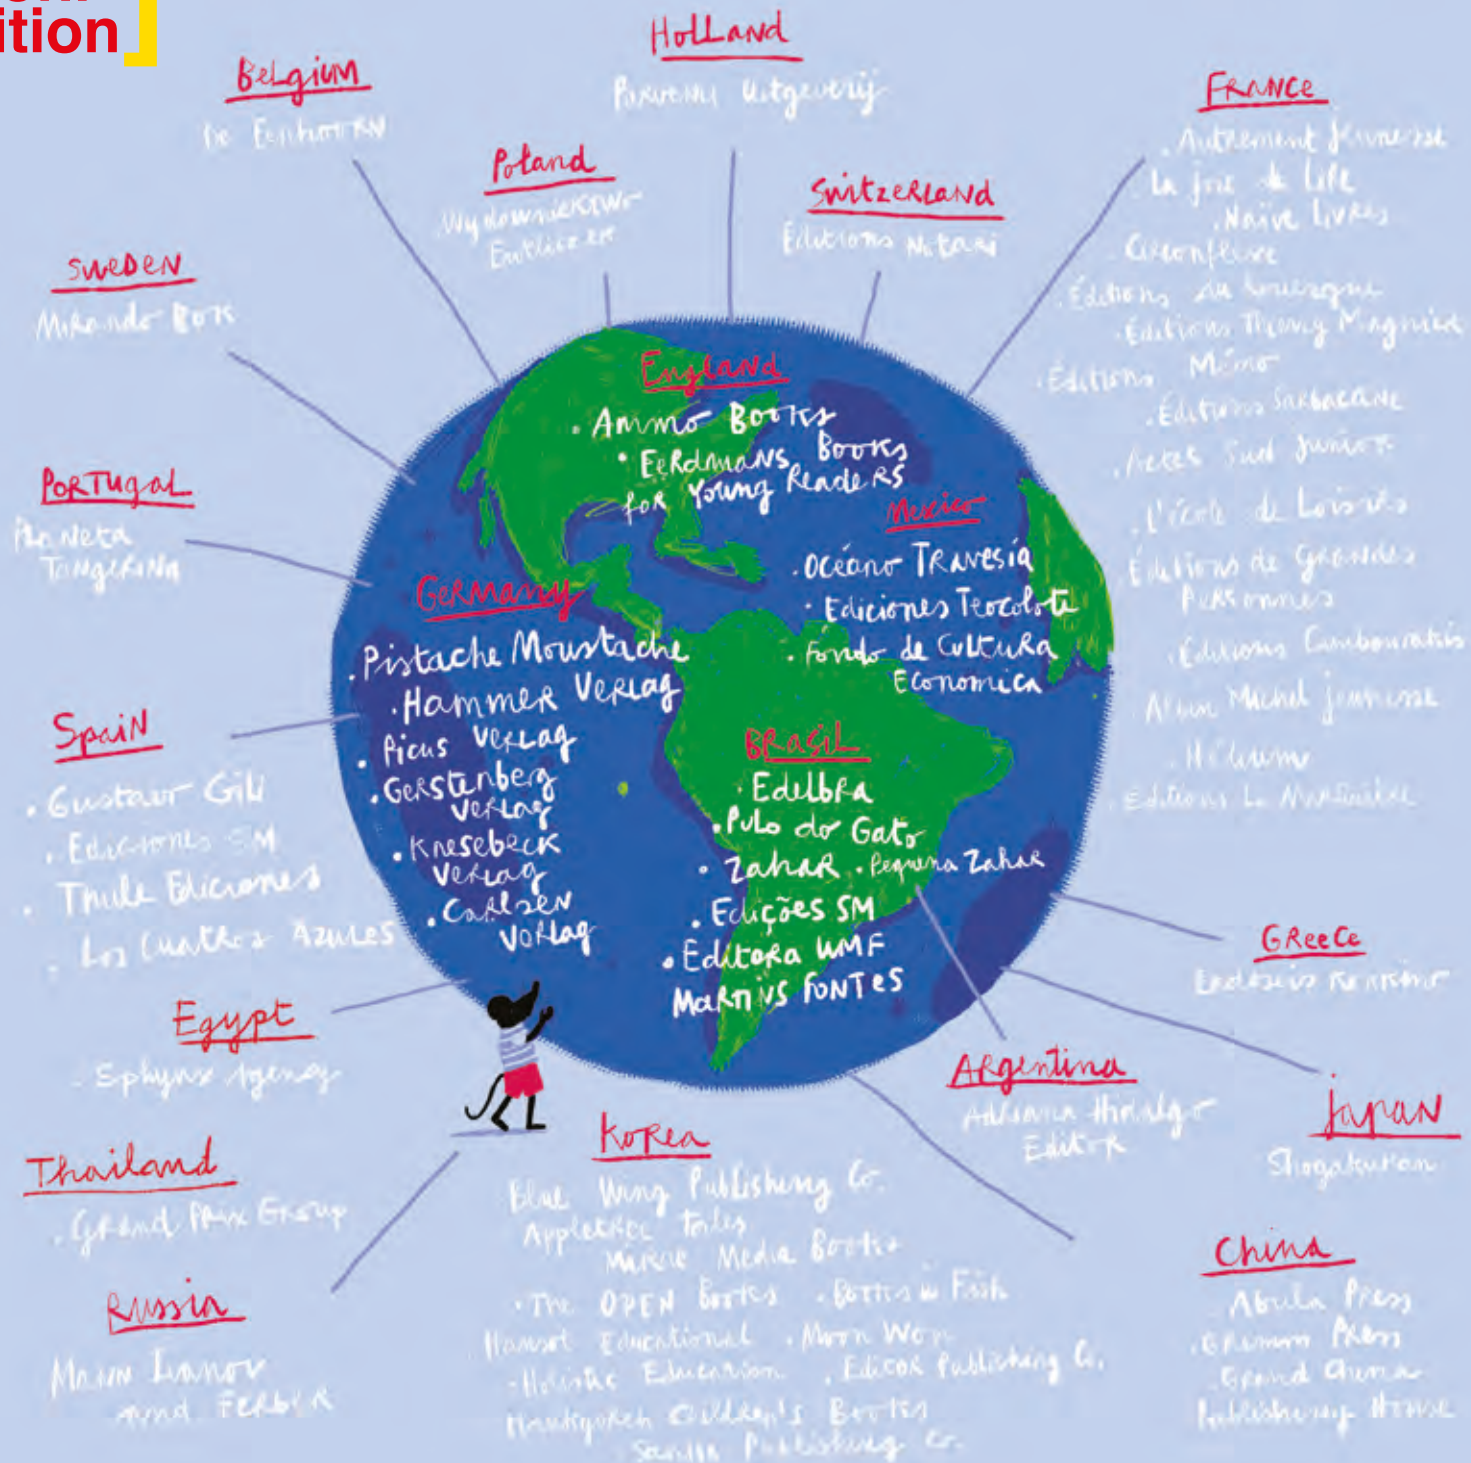 ition
Belgium
De Eenhoorn
Holland
Parvenu Uitgeverij
France
. Autrement Jeunesse
La joie de lire
. Naïve Livres
Circonflexe
. Éditions du Rouergue
. Éditions Thierry Magnier
. Éditions Mémo
. Éditions Sarbacane
. Actes Sud Junior
. L'école de Loisirs
Éditions de Grandes
Personnes
. Éditions Cambourakis
Albin Michel jeunesse
. Hélium
. Editions La Martinière
Poland
Wydawnictwo
Entliczek
Switzerland
Éditions Notari
Sweden
Mirando Bok
Portugal
Planeta
Tangerina
Spain
. Gustavo Gili
. Ediciones SM
. Thule Ediciones
. Los Cuatros Azules
England
. Ammo Books
. Eerdmans Books
for Young Readers
Mexico
. Océano Travesía
. Ediciones Tecolote
. Fondo de Cultura
Economica
Germany
. Pistache Moustache
. Hammer Verlag
. Picus Verlag
. Gerstenberg
Verlag
. Knesebeck
Verlag
. Carlsen
Verlag
Brasil
. Edelbra
. Pulo do Gato
. Zahar . Pequena Zahar
. Edições SM
. Editora WMF
Martins Fontes
Egypt
. Sphynx Agency
Greece
Japan
Shogakukan
Argentina
Adriana Hidalgo
Editor
Thailand
. Grand Prix Group
Russia
Mann Ivanov
and Ferber
Korea
Blue Wing Publishing Co.
Appletree Tales
Mirae Media Books
. The OPEN Books . Books in Fish
Hansol Educational . Moon Won
. Holistic Education . Editor Publishing Co.
Children's Books
Publishing Co.
China
Abula Press
. Grimm Press
. Grand China
Publishing House